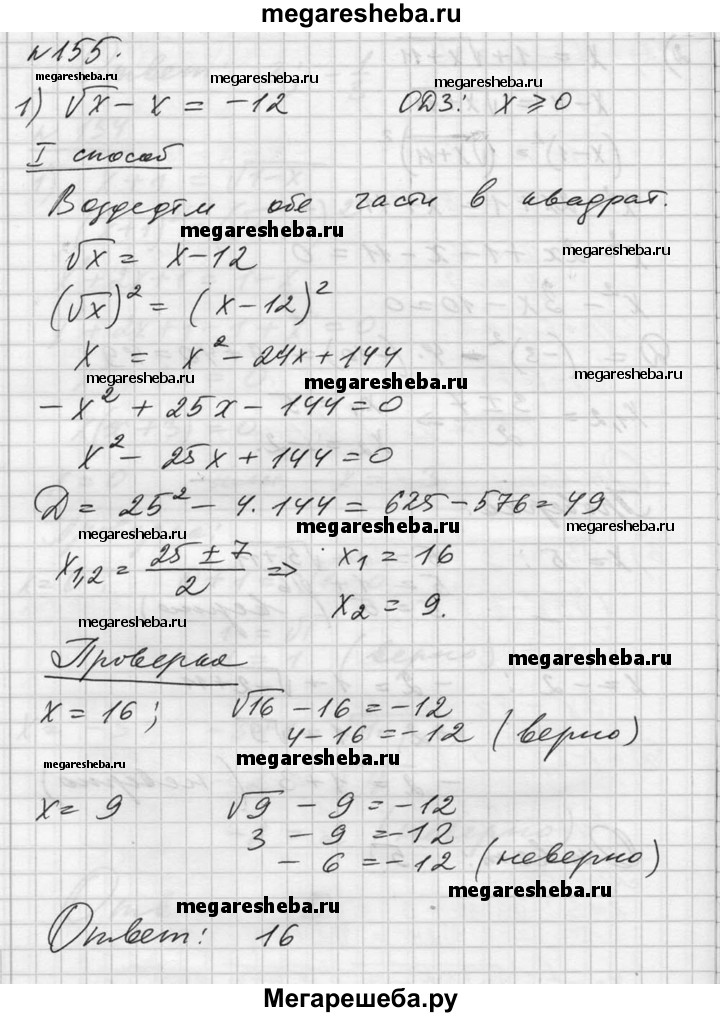 megaresheba.ru
№155.
megaresheba.ru megaresheba.ru megaresheba.ru
1) √x - x = -12 ОДЗ: x ⩾ 0
I способ
Возведём обе части в квадрат.
megaresheba.ru
megaresheba.ru
√x = x-12
(√x)² = (x-12)²
x = x² - 24x + 144
megaresheba.ru megaresheba.ru megaresheba.ru
-x² + 25x - 144 = 0
x² - 25x + 144 = 0
Д = 25² - 4·144 = 625 - 576 = 49
megaresheba.ru megaresheba.ru megaresheba.ru
x₁,₂ = (25 ± 7)/2 ⇒ x₁ = 16
x₂ = 9.
megaresheba.ru
Проверка
megaresheba.ru
x = 16; √16 - 16 = -12
4 - 16 = -12 (верно)
megaresheba.ru
megaresheba.ru
x = 9 √9 - 9 = -12
3 - 9 = -12
- 6 = -12 (неверно)
megaresheba.ru
megaresheba.ru
Ответ: 16
Мегарешеба.ру